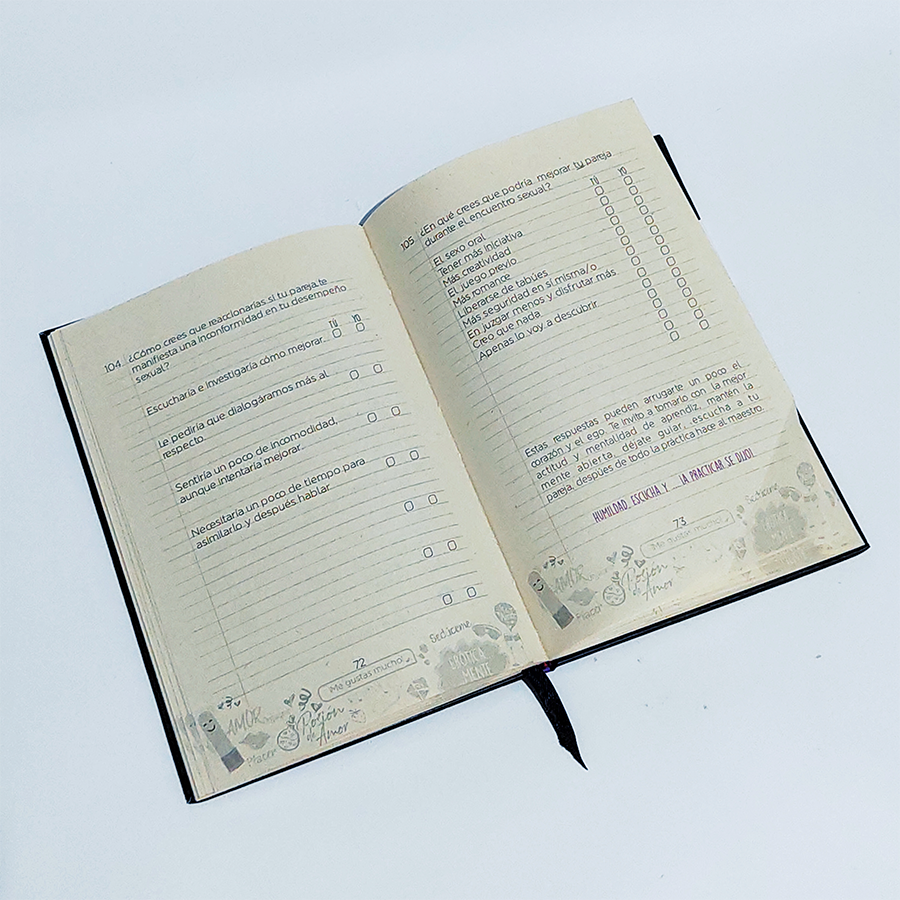 104 ¿Cómo crees que reaccionarías si tu pareja te
manifiesta una inconformidad en tu desempeño
sexual?
TÚ YO
Escucharía e investigaría cómo mejorar.
Le pediría que dialogáramos más al
respecto.
Sentiría un poco de incomodidad,
aunque intentaría mejorar.
Necesitaría un poco de tiempo para
asimilarlo y después hablar.
72
¡Me gustas mucho!
Sedúceme
ERÓTICA
MENTE
AMOR
Placer
Poción
de Amor
105 ¿En qué crees que podría mejorar tu pareja
durante el encuentro sexual?
TÚ YO
El sexo oral
Tener más iniciativa
Más creatividad
El juego previo
Más romance
Liberarse de tabúes
Más seguridad en sí misma/o
En juzgar menos y disfrutar más
Creo que nada
Apenas lo voy a descubrir
Estas respuestas pueden arrugarte un poco el
corazón y el ego. Te invito a tomarlo con la mejor
actitud y mentalidad de aprendiz, mantén la
mente abierta, déjate guiar, escucha a tu
pareja, después de todo la práctica hace al maestro.
HUMILDAD, ESCUCHA Y ¡A PRACTICAR SE DIJO!
73
¡Me gustas mucho!
Sedúceme
AMOR
Placer
Poción
de Amor